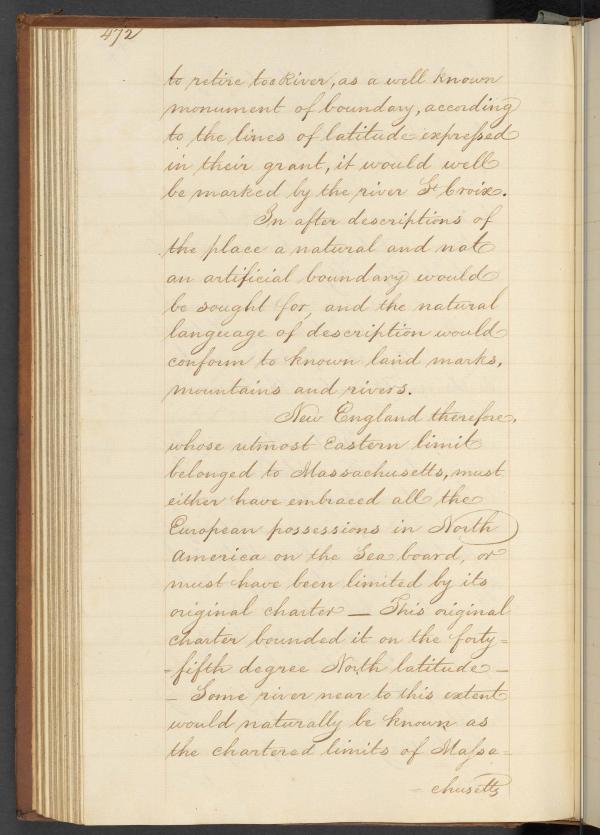 472
to retire to a River, as a well known
monument of boundary, according
to the lines of latitude expressed
in their grant, it would well
be marked by the river St Croix.
In after descriptions of
the place a natural and not
an artificial boundary would
be sought for, and the natural
language of description would
conform to known land marks,
mountains and rivers.
New England therefore,
whose utmost Eastern limit
belonged to Massachusetts, must
either have embraced all the
European possessions in North
America on the Sea board, or
must have been limited by its
original charter — This original
charter bounded it on the forty=
=fifth degree North latitude —
— Some river near to this extent
would naturally be known as
the chartered limits of Massa=
chusetts